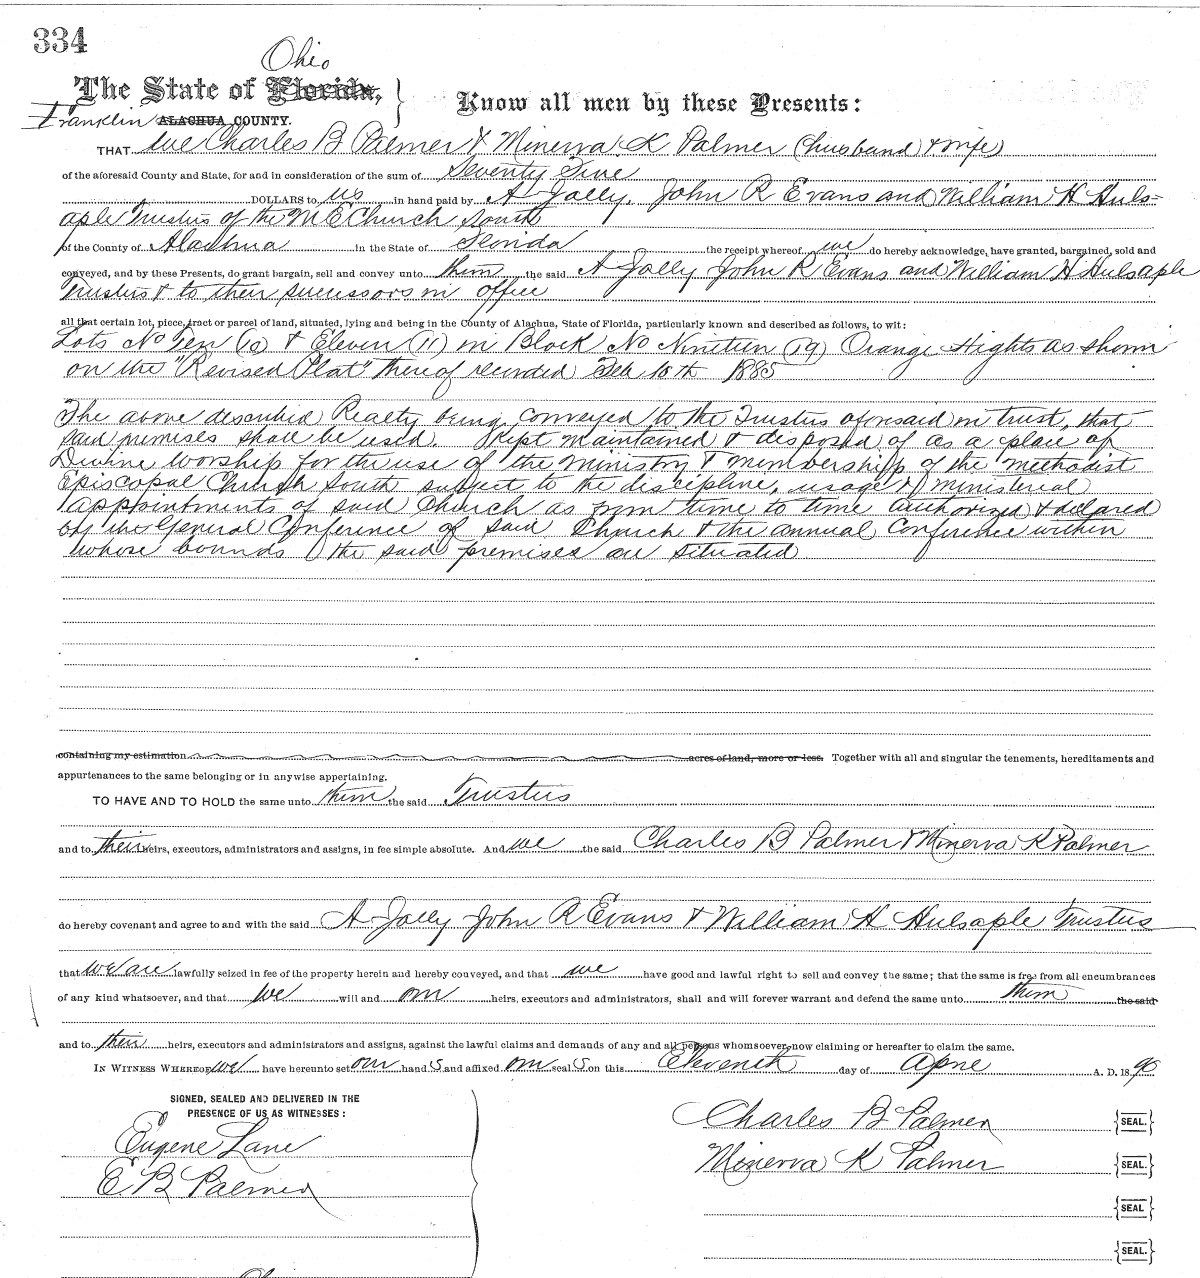 334
Ohio
The State of Florida,
Know all men by these Presents:
Franklin ALACHUA COUNTY.
THAT we Charles B Palmer & Minerva K Palmer (husband & wife)
of the aforesaid County and State, for and in consideration of the sum of Seventy Five
DOLLARS to us in hand paid by A Jolly, John R Evans and William H Huls-
aple Trustees of the M E Church South
of the County of Alachua in the State of Florida the receipt whereof we do hereby acknowledge, have granted, bargained, sold and
conveyed, and by these Presents, do grant bargain, sell and convey unto them the said A Jolly John R Evans and William H Hulsaple
Trustees & to their successors in office
all that certain lot, piece, tract or parcel of land, situated, lying and being in the County of Alachua, State of Florida, particularly known and described as follows, to wit:
Lots No Ten (10) & Eleven (11) in Block No Nineteen (19) Orange Hights as shown
on the "Revised Plat" thereof recorded Feb 18th 1885
The above described Realty being conveyed to the Trustees aforesaid in trust, that
said premises shall be used, Kept maintained & disposed of as a place of
Divine Worship for the use of the Ministry & membership of the Methodist
Episcopal Church South subject to the discipline, usage & ministerial
appointments of said Church as from time to time authorized & declared
by the General Conference of said Church & the annual Conference within
whose bounds the said premises are situated
containing my estimation acres of land, more or less. Together with all and singular the tenements, hereditaments and
appurtenances to the same belonging or in anywise appertaining.
TO HAVE AND TO HOLD the same unto them the said Trustees
and to their heirs, executors, administrators and assigns, in fee simple absolute. And we the said Charles B Palmer & Minerva K Palmer
do hereby covenant and agree to and with the said A Jolly John R Evans & William H Hulsaple Trustees
that we are lawfully seized in fee of the property herein and hereby conveyed, and that we have good and lawful right to sell and convey the same; that the same is free from all encumbrances
of any kind whatsoever, and that we will and our heirs, executors and administrators, shall and will forever warrant and defend the same unto them the said
and to their heirs, executors and administrators and assigns, against the lawful claims and demands of any and all persons whomsoever, now claiming or hereafter to claim the same.
IN WITNESS WHEREOF, we have hereunto set our hand s and affixed our seal s on this Eleventh day of Apne A. D. 18 90
SIGNED, SEALED AND DELIVERED IN THE
PRESENCE OF US AS WITNESSES:
Charles B Palmer SEAL.
Eugene Lane
Minerva K Palmer SEAL.
E. B Palmer
SEAL
SEAL.